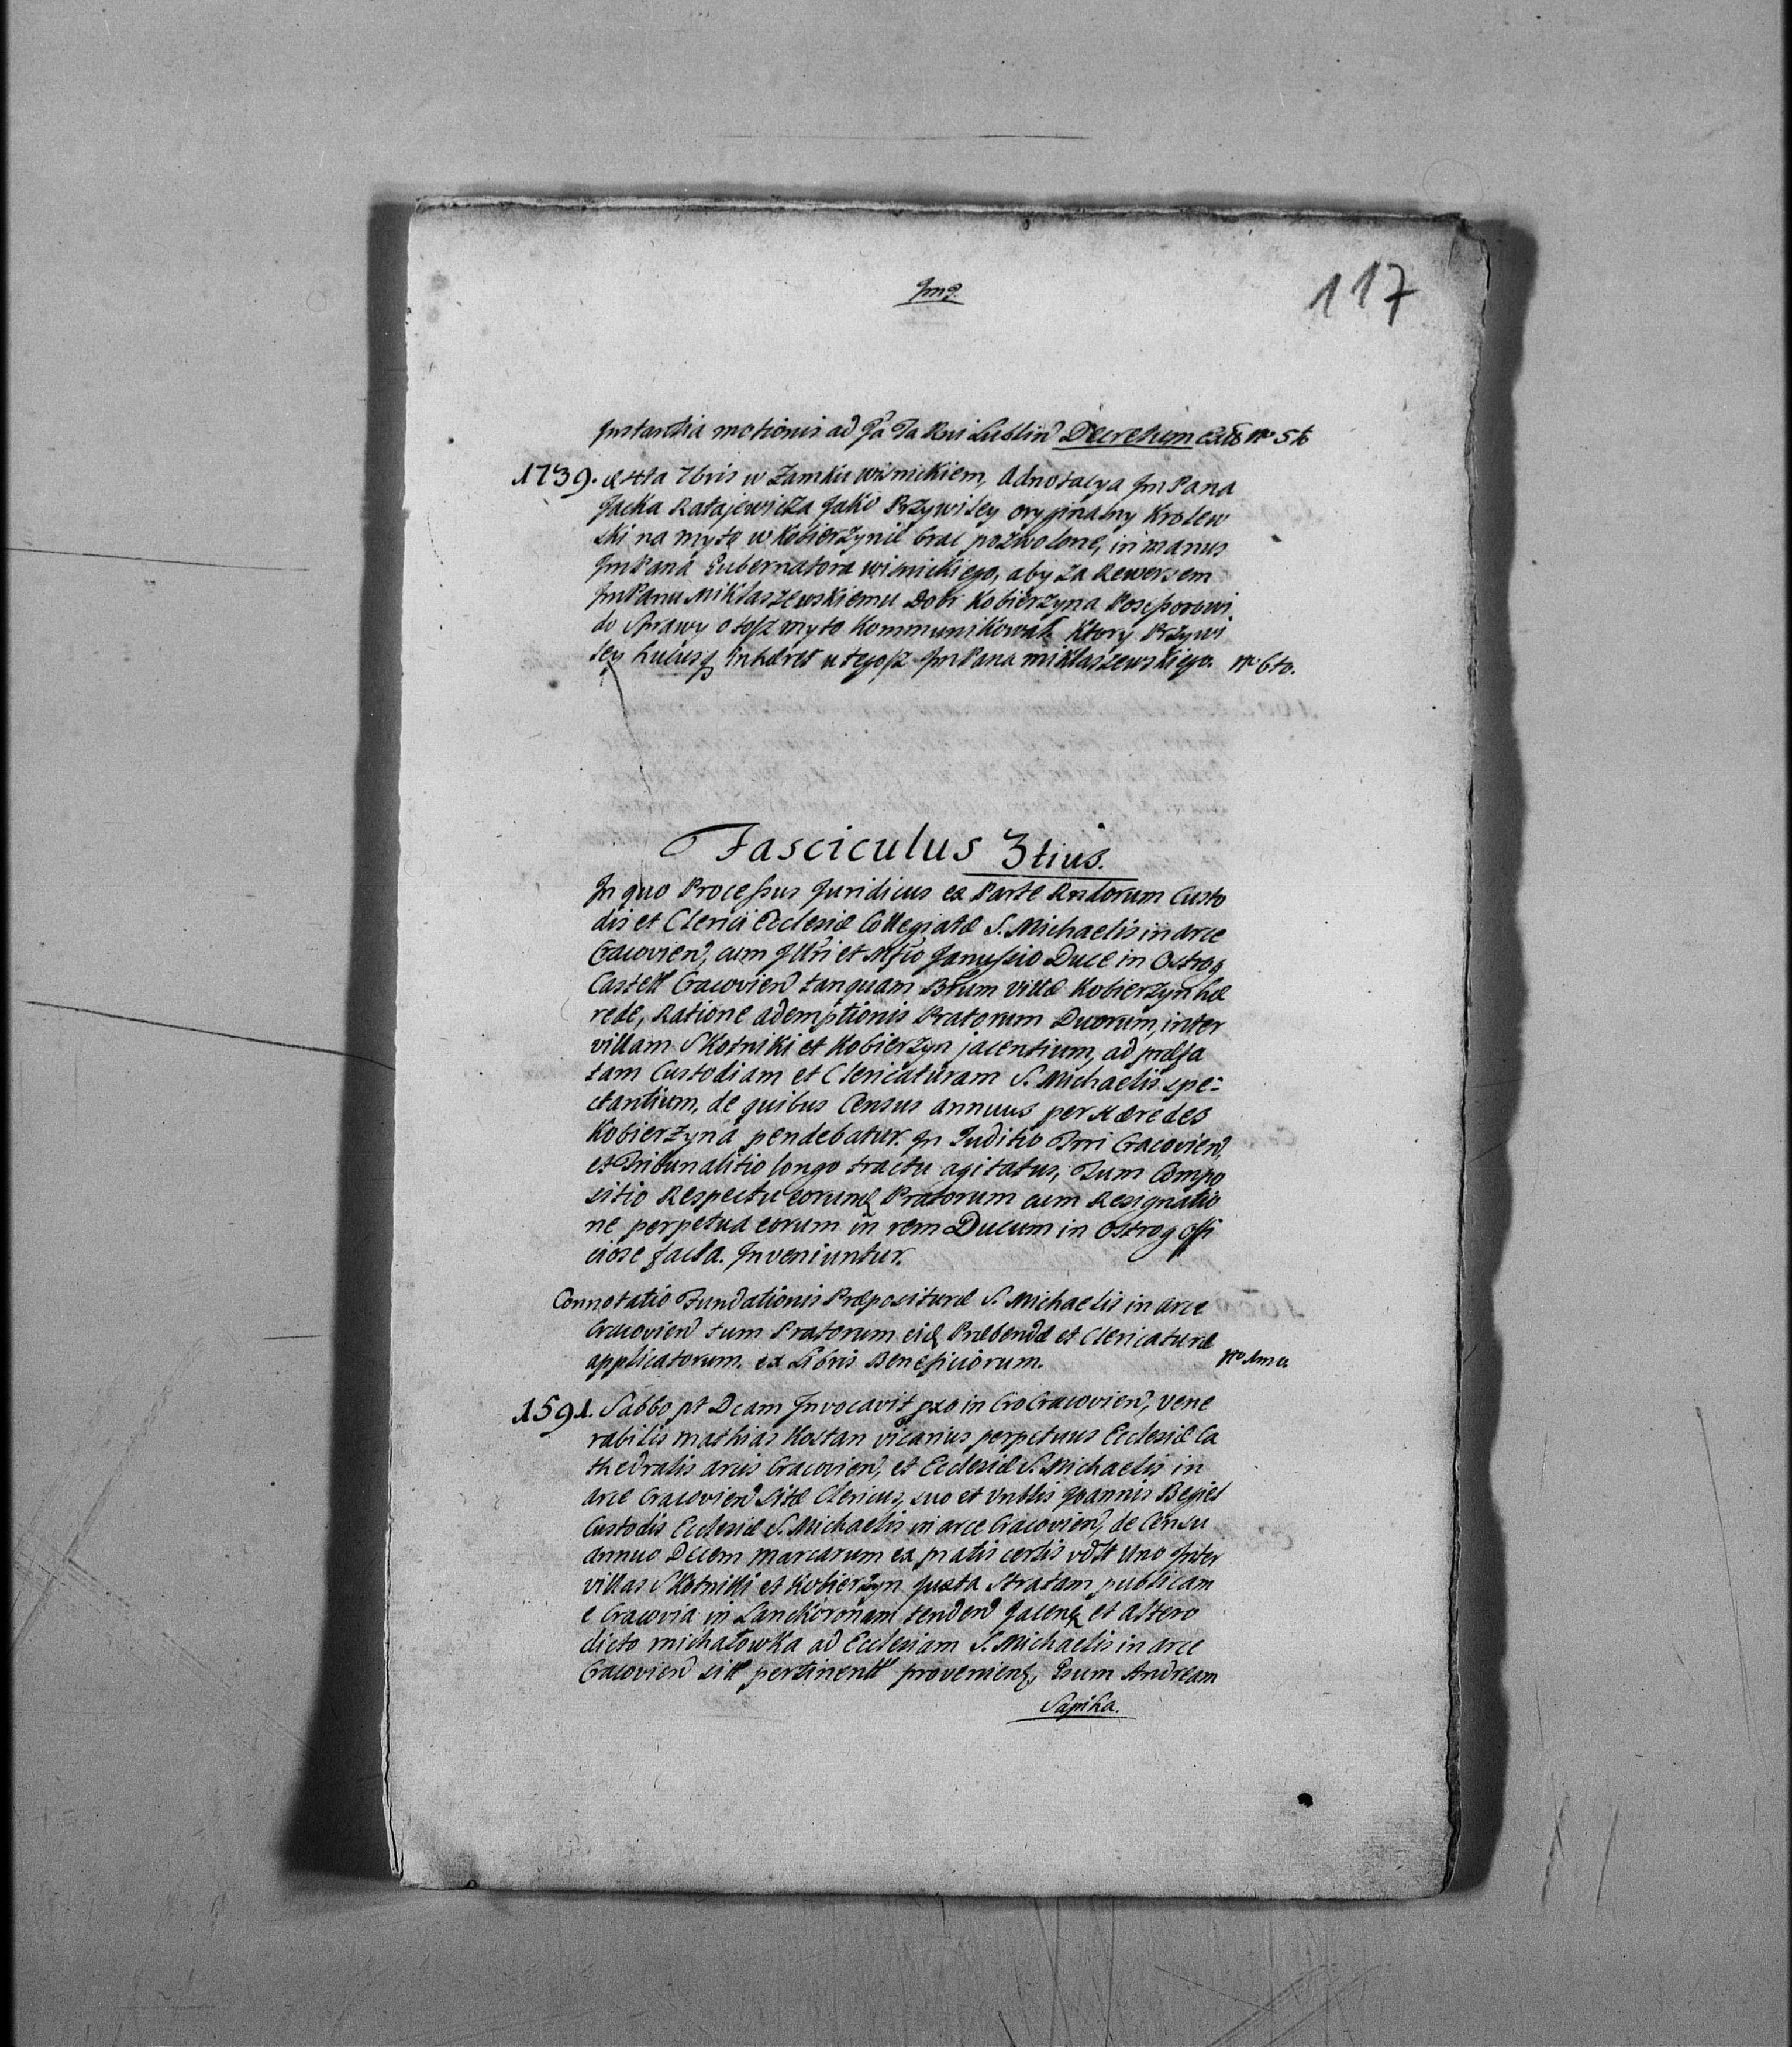 117
Instantia motionis ad Decretum No 5to
1739. 7bris w Zamku wisnickiem, Adnotacya Jm Pana
Jacka Ratajewicza Jako Przywiley oryginalny Krolew
ski na myto w Kobierzynie brac pozwolone, in manus
Jm Pana Gubernatora wisnickiego, aby za Rewersem
Jm Panu Miklaszewskiemu Dobr Kobierzyna Possessorowi
do Sprawy o tosz myto Kommunikował Ktory Przywi
ley hucusq inhæret u tegosz Jm Pana miklaszewskiego. No 6to.
Fasciculus 3tius.
In quo Processus Juridicus ex Parte Rndorum Custo
dis et Clerici Ecclesiæ Collegiatæ S. Michaelis in arce
Cracovien, cum Illri et Mfco Janussio Duce in Ostrog
Castell Cracovien tanquam Brum villæ Kobierzyn hæ
rede, Ratione ademptionis Pratorum Duorum, inter
villam Skotniki et Kobierzyn jacentium, ad præfa
tam Custodiam et Clericaturam S. Michaelis spe-
ctantium, de quibus Census annuus per Hæredes
Kobierzyna pendebatur. In Juditio Trri Cracovien,
et Tribunalitio longo tractu agitatus, Tum Compo
sitio Respectu eorumq Pratorum cum Resignatio
ne perpetua eorum in rem Ducum in Ostrog offi
ciose facta. Inveniuntur.
Connotatio Fundationis Præpositure S. Michaelis in arce
Cracovien tum Pratorum eiq Præbendæ et Clericaturæ
applicatorum. ex Libris Beneficiorum. No 1mu
1591. Sabbo pt Dcam Invocavit pxo in Cro Cracovien, Vene
rabilis Mathias Kostan vicarius perpetuus Ecclesiæ Ca
thedralis arcis Cracovien, et Ecclesiæ S. Michaelis in
arce Cracovien Sitæ Clericus, suo et Vnbllis Joannis Begiel
Custodis Ecclesiæ S. Michaelis in arce Cracovien, de Censu
annuo Decem marcarum ex pratis certis vdlt Uno Inter
villas Skotniki et Kobierzyn Juxta Stratam publicam
e Cracovia in Lanckoronam tenden Jacenq et altero
dicto michałowka ad Ecclesiam S. Michaelis in arce
Cracovien sitt pertinentt provenienq, Gsum Andream
Sapiha.